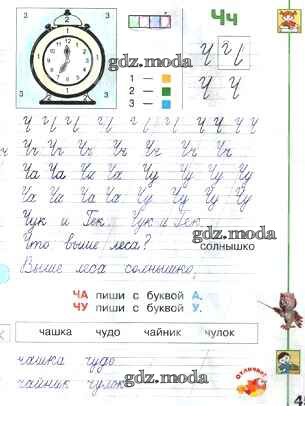 Чч
3 2 3
12
11 1
10 2
9 3
8 4
7 5
6
1 1
3 3
gdz.moda
1 —
2 —
3 —
Ч Ч
Ч Ч
Ч Ч Ч Ч Ч Ч Ч Ч Ч
Чч Чч Чч Чч Чч Чч Чч
Ча Ча Ча Ча Чу Чу Чу Чу
Ча Ча Ча Ча Чу Чу Чу Чу Чу
Чук и Гек. Чук и Гек.
gdz.moda
Что выше леса? солнышко
Выше леса солнышко.
ЧА пиши с буквой А.
ЧУ пиши с буквой У.
чашка чудо чайник чулок
чашка чудо
чайник чулок
gdz.moda
Отлично!